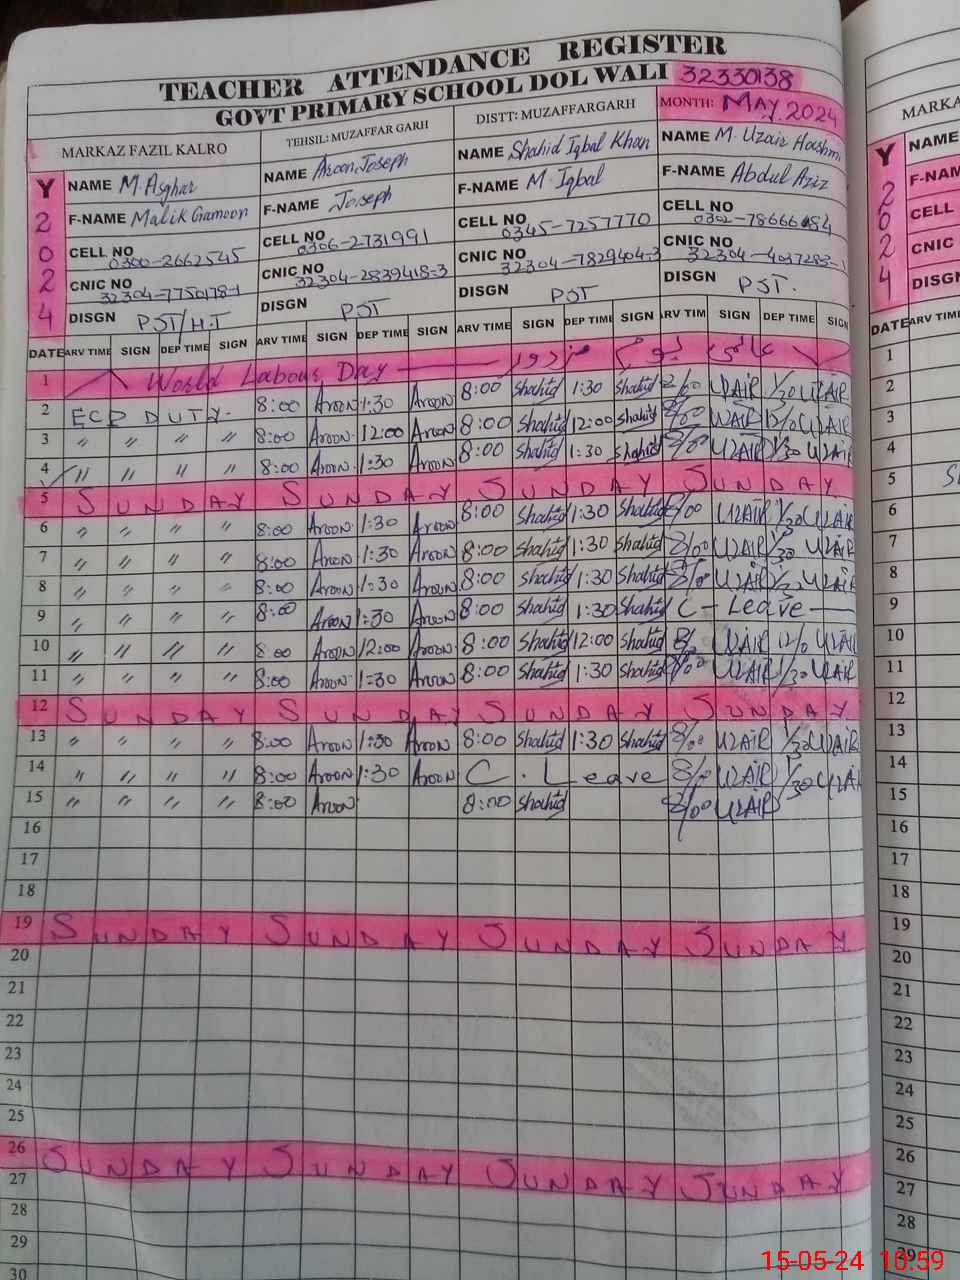 TEACHER ATTENDANCE REGISTER
GOVT PRIMARY SCHOOL DOL WALI 32330138
MARKAZ FAZIL KALRO TEHSIL: MUZAFFAR GARH DISTT: MUZAFFARGARH MONTH: MAY. 2024
Y NAME M. Asghar NAME Aroon Joseph NAME Shahid Iqbal Khan NAME M. Uzair Hashm
2 F-NAME Malik Gamoon F-NAME Joseph F-NAME M. Iqbal F-NAME Abdul Aziz
0 CELL NO 0300-2662545 CELL NO 0306-2731991 CELL NO 0345-7257770 CELL NO
2 CNIC NO 32304-7750178-1 CNIC NO 32304-2839418-3 CNIC NO 32304-7829404-3 CNIC NO
4 DISGN PST/H.T DISGN PST DISGN PST DISGN PST.
DATE ARV TIME SIGN DEP TIME SIGN ARV TIME SIGN DEP TIME SIGN ARV TIME SIGN DEP TIME SIGN ARV TIME SIGN DEP TIME SIGN
1 World Labour Day یوم مزدور
2 ECP DUTY. 8:00 Aroon 1:30 Aroon 8:00 Shahid 1:30 Shahid 8/00 UZAIR 1/30 UZAIR
3 〃 〃 〃 〃 8:00 Aroon 12:00 Aroon 8:00 Shahid 12:00 Shahid 8/00 UZAIR 12/0 UZAIR
4 〃 〃 〃 〃 8:00 Aroon 1:30 Aroon 8:00 Shahid 1:30 Shahid 8/00 UZAIR 1/30 UZAIR
5 SUNDAY SUNDAY SUNDAY SUNDAY
6 〃 〃 〃 〃 8:00 Aroon 1:30 Aroon 8:00 Shahid 1:30 Shahid 8/00 UZAIR 1/30 UZAIR
7 〃 〃 〃 〃 8:00 Aroon 1:30 Aroon 8:00 Shahid 1:30 Shahid 8/00 UZAIR 1/30 UZAIR
8 〃 〃 〃 〃 8:00 Aroon 1:30 Aroon 8:00 Shahid 1:30 Shahid 8/00 UZAIR 1/30 UZAIR
9 〃 〃 〃 〃 8:00 Aroon 1:30 Aroon 8:00 Shahid 1:30 Shahid C-Leave
10 〃 〃 〃 〃 8:00 Aroon 12:00 Aroon 8:00 Shahid 12:00 Shahid 8/ UZAIR 12/0 UZAIR
11 〃 〃 〃 〃 8:00 Aroon 1:30 Aroon 8:00 Shahid 1:30 Shahid 8/00 UZAIR 1/30 UZAIR
12 SUNDAY SUNDAY SUNDAY SUNDAY
13 〃 〃 〃 〃 8:00 Aroon 1:30 Aroon 8:00 Shahid 1:30 Shahid 8/00 UZAIR 1/30 UZAIR
14 〃 〃 〃 〃 8:00 Aroon 1:30 Aroon C. Leave 8/0 UZAIR 1/30 UZAIR
15 〃 〃 〃 〃 8:00 Aroon 8:00 Shahid 8/00 UZAIR
16
17
18
19 SUNDAY SUNDAY SUNDAY SUNDAY
20
21
22
23
24
25
26 SUNDAY SUNDAY SUNDAY SUNDAY
27
28
29
30
MARKA
Y NAME
2 F-NAM
0 CELL
2 CNIC
4 DISGN
DATE ARV TIME
1
2
3
4
5 S
6
7
8
9
10
11
12
13
14
15
16
17
18
19
20
21
22
23
24
25
26
27
28
29
15-05-24 10:59